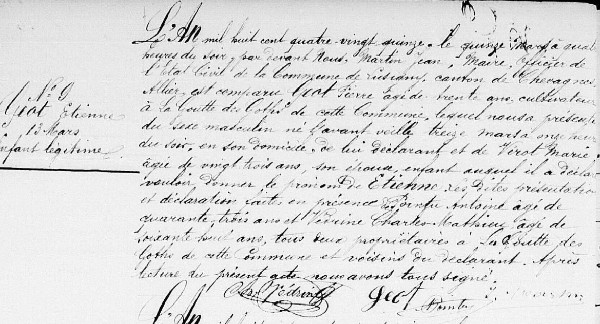 L'An mil huit cent quatre-vingt quinze, le quinze Mars à quatre
heures du soir, par devant Nous, Martin Jean, Maire, Officier de
l'Etat Civil de la Commune de Lusigny, canton de Chevagnes
Allier, est comparu Geot Pierre âgé de trente ans, cultivateur
à la Coutte des Goths de cette Commune, lequel nous a présenté
du sexe masculin né l'avant veille treize mars à onze heures
du soir, en son domicile, de lui déclarant et de Virot Marie
âgée de vingt trois ans, son épouse, enfant auquel il a déclaré
vouloir donner le prénom de Etienne. Les dites présentation
et déclaration faites en présence de Antoine âgé de
quarante trois ans et Védrine Charles-Mathieu âgé de
soixante huit ans, tous deux propriétaires à La des
Goths de cette Commune et voisins du déclarant. Après
lecture du présent acte nous avons tous signé.
N° 9
Geot Etienne
13 Mars
enfant légitime
Védrine
Geot
Martin
L'An mil huit cent